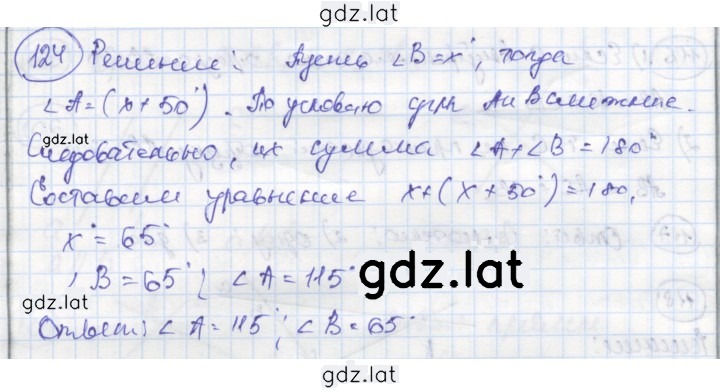 gdz.lat
124 Решение: Пусть ∠B=x°, тогда
∠A=(x+50°). По условию углы A и B смежные.
Следовательно, их сумма ∠A+∠B=180°
Составим уравнение x+(x+50°)=180,
x°=65°
∠B=65°; ∠A=115°
gdz.lat
Ответ: ∠A=115°; ∠B=65°
gdz.lat